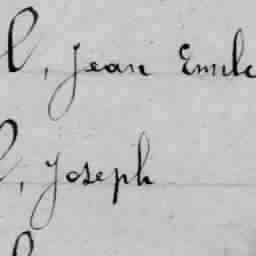 l, Jean Emile
, Joseph